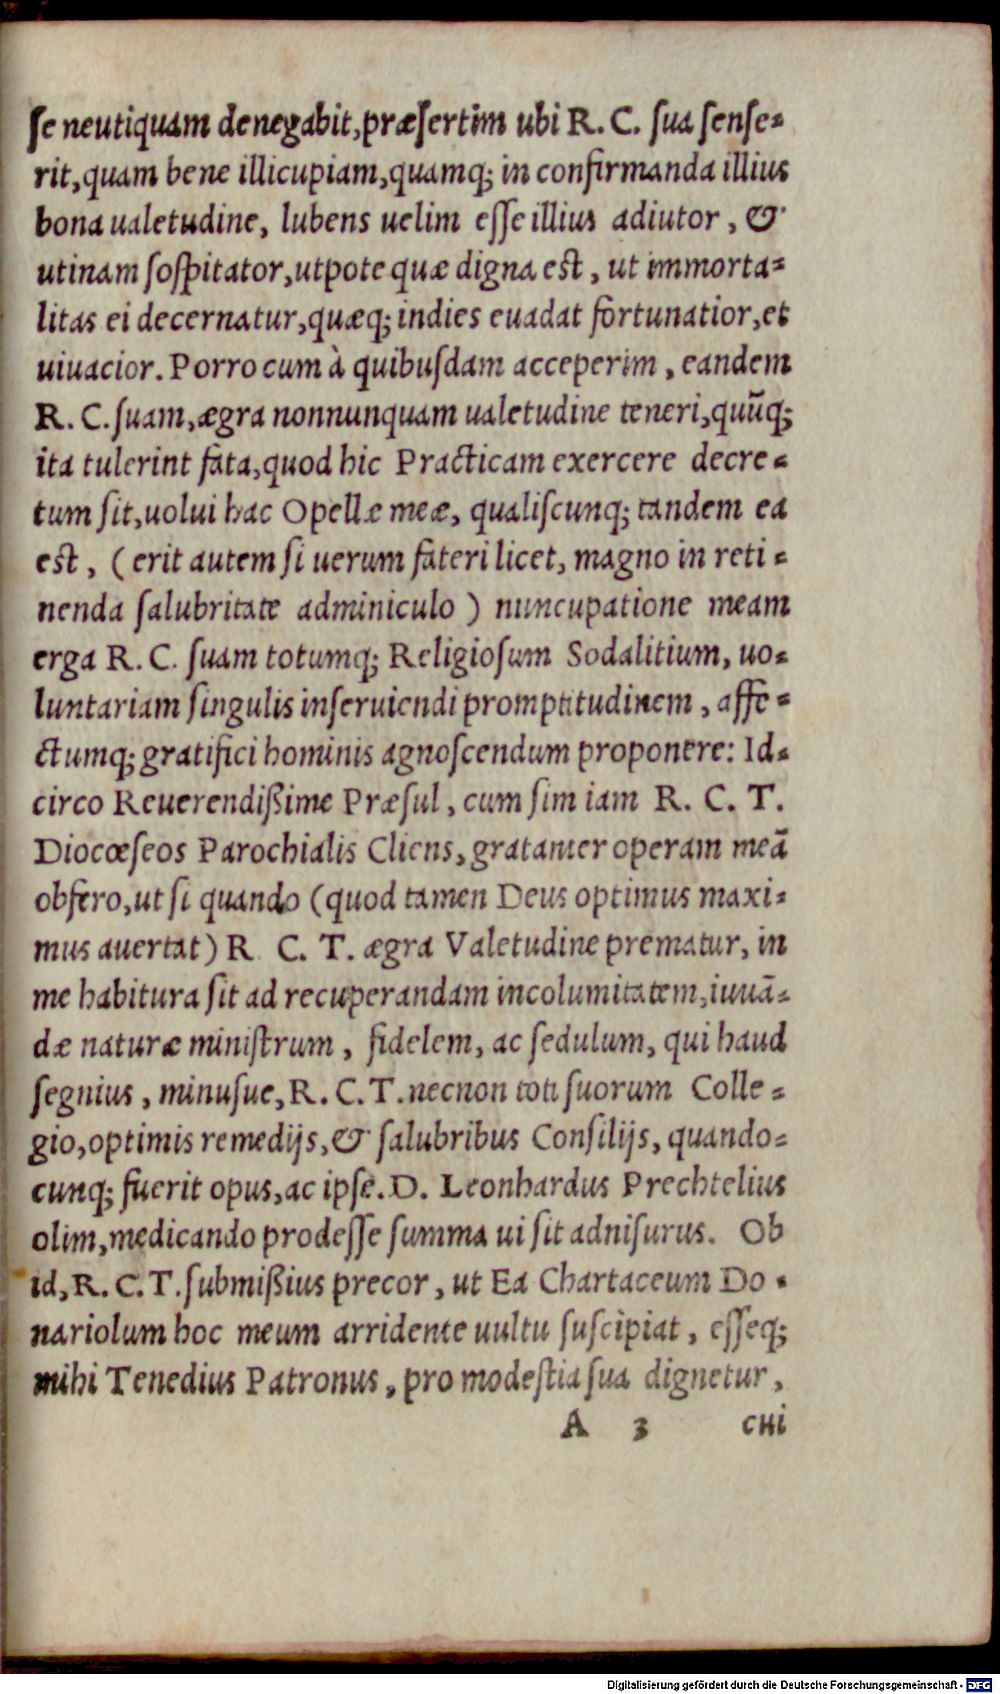 ſe neutiquam denegabit,præſertim ubi R. C. ſua ſenſe-
rit,quam bene illicupiam,quamq; in confirmanda illius
bona ualetudine, lubens uelim eſſe illius adiutor, &
utinam ſoſpitator,utpote quæ digna est, ut immorta-
litas ei decernatur,quæq; indies euadat fortunatior,et
uiuacior. Porro cum à quibuſdam acceperim, eandem
R. C. ſuam,ægra nonnunquam ualetudine teneri,quūq;
ita tulerint fata,quod hic Practicam exercere decre-
tum ſit,uolui hac Opellæ meæ, qualiſcunq; tandem ea
est, (erit autem ſi uerum fateri licet, magno in reti-
nenda ſalubritate adminiculo) nuncupatione meam
erga R. C. ſuam totumq; Religioſum Sodalitium, uo-
luntariam ſingulis inſeruiendi promptitudinem, affe-
ctumq; gratifici hominis agnoſcendum proponere: Id-
circo Reuerendißime Præſul, cum ſim iam R. C. T.
Diocœſeos Parochialis Cliens, gratanter operam meā
obfero,ut ſi quando (quod tamen Deus optimus maxi-
mus auertat) R. C. T. ægra Valetudine prematur, in
me habitura ſit ad recuperandam incolumitatem,iuuā-
dæ naturæ miniſtrum, fidelem, ac ſedulum, qui haud
ſegnius, minuſue, R. C. T. necnon toti ſuorum Colle-
gio,optimis remedijs,& ſalubribus Conſilijs, quando-
cunq; fuerit opus,ac ipſe.D. Leonhardus Prechtelius
olim,medicando prodeſſe ſumma ui ſit adniſurus. Ob
id, R. C. T. ſubmißius precor, ut Ea Chartaceum Do-
nariolum hoc meum arridente uultu ſuſcipiat, eſſeq;
mihi Tenedius Patronus, pro modeſtia ſua dignetur,
A 3 cui
Digitalisierung gefördert durch die Deutsche Forschungsgemeinschaft - DFG